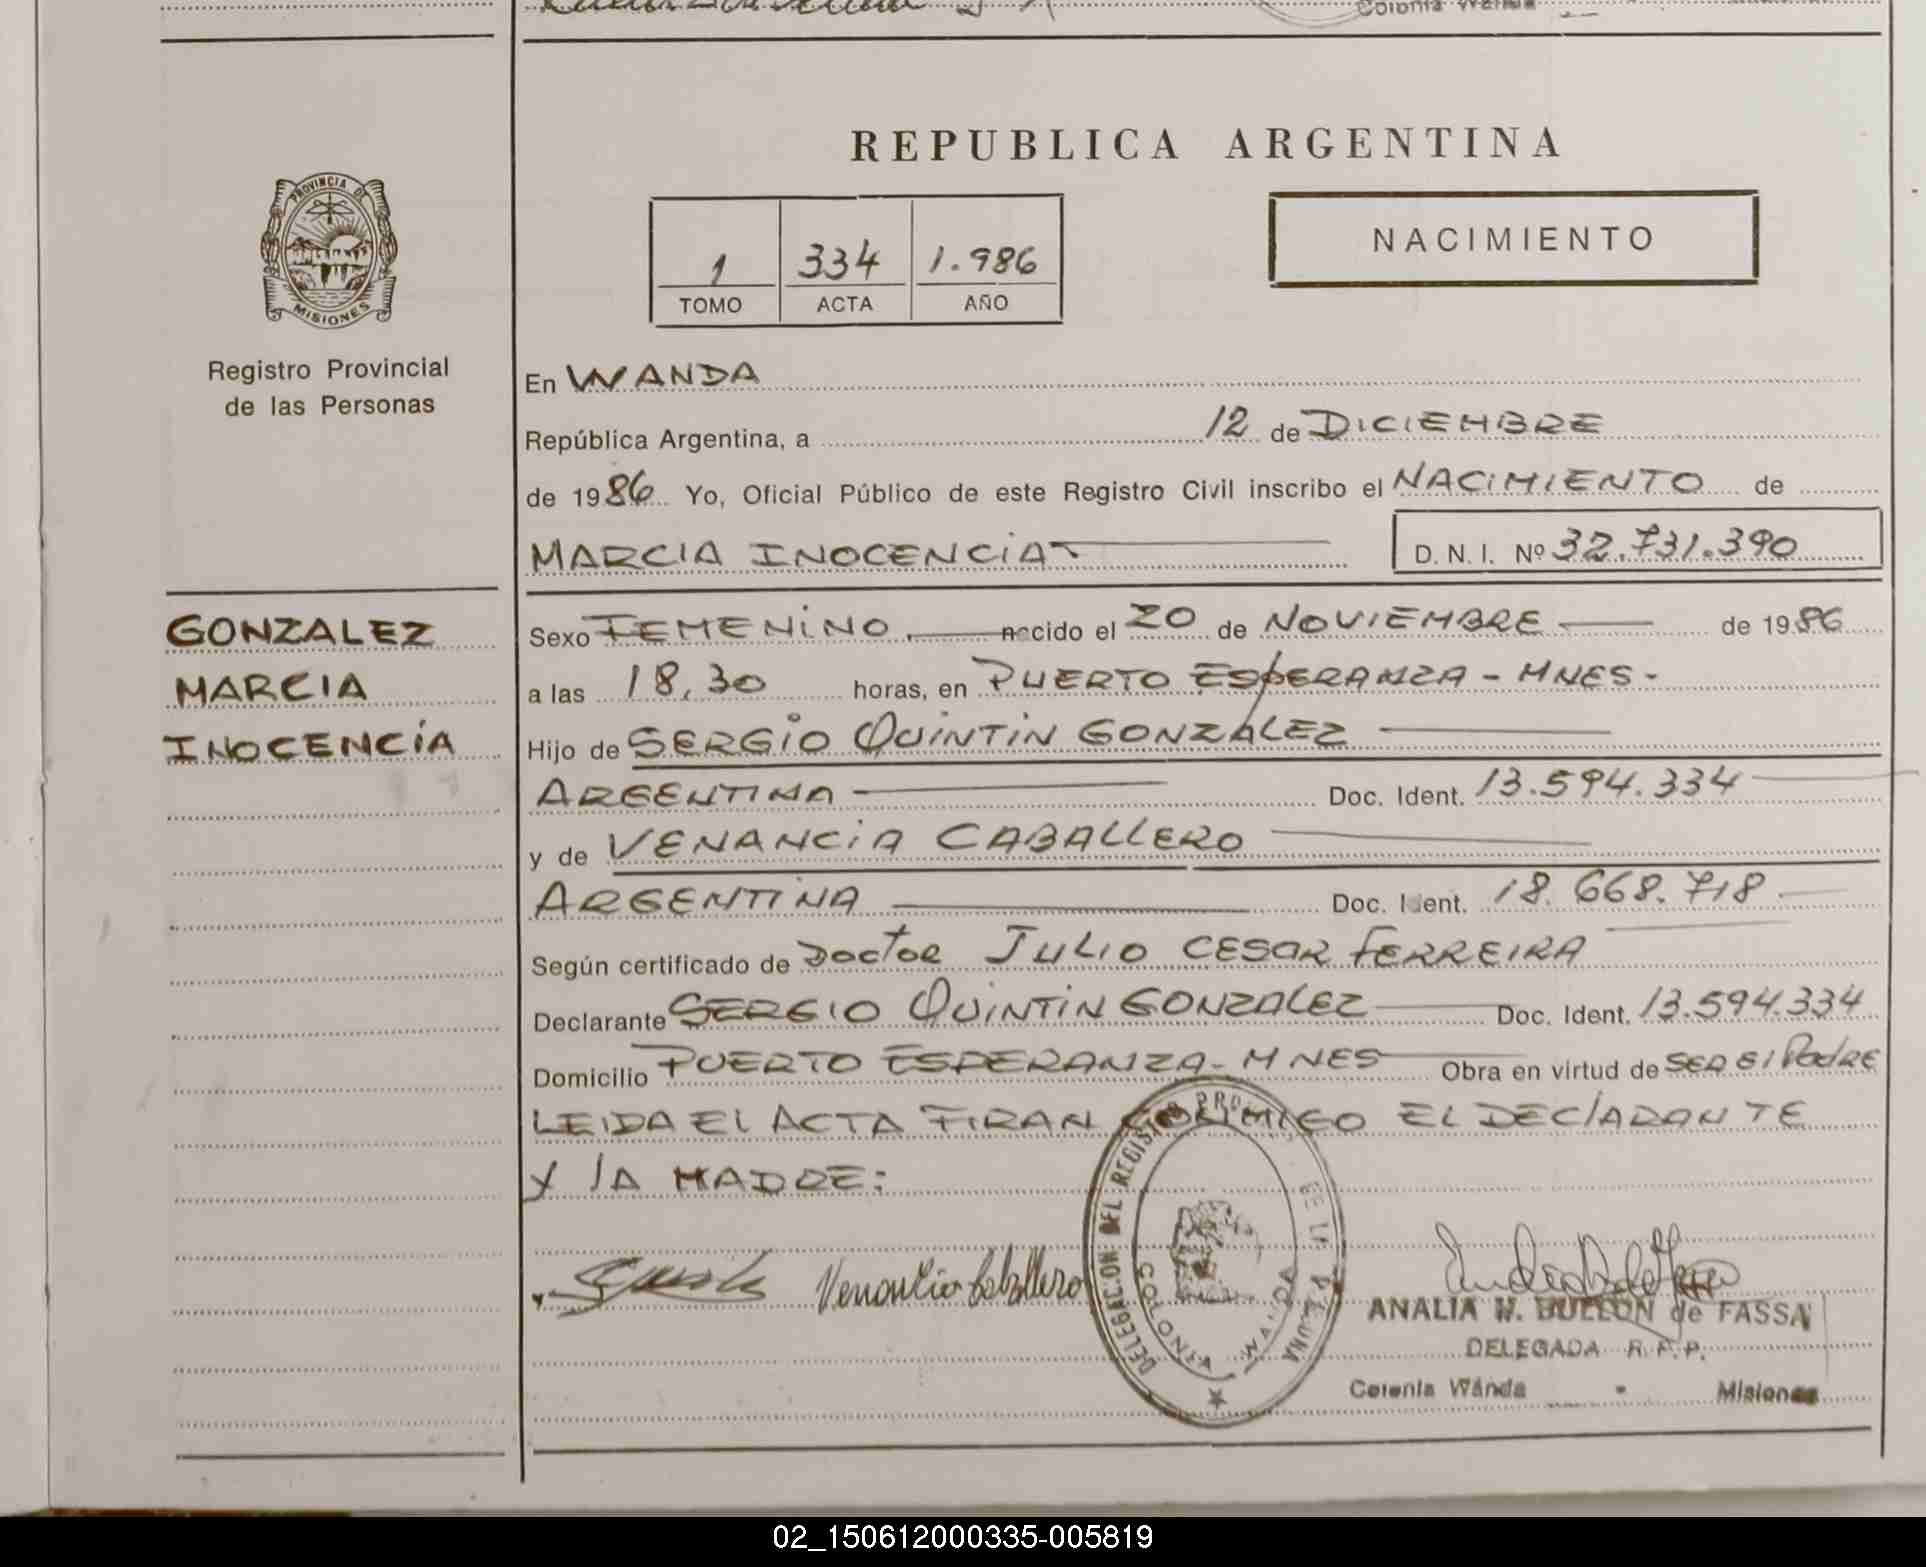 Colonia Wanda
REPUBLICA ARGENTINA
PROVINCIA DE
MISIONES
Registro Provincial
de las Personas
1 334 1.986
TOMO ACTA AÑO
NACIMIENTO
En WANDA
República Argentina, a 12 de DICIEMBRE
de 1986 Yo, Oficial Público de este Registro Civil inscribo el NACIMIENTO de
MARCIA INOCENCIA D. N. I. Nº 32.731.390
GONZALEZ
MARCIA
INOCENCIA
Sexo FEMENINO. nacido el 20 de NOVIEMBRE de 1986
a las 18,30 horas, en PUERTO ESPERANZA - MNES -
Hijo de SERGIO QUINTIN GONZALEZ
ARGENTINA Doc. Ident. 13.594.334
y de VENANCIA CABALLERO
ARGENTINA Doc. Ident. 18.668.718
Según certificado de Doctor JULIO CESAR FERREIRA
Declarante SERGIO QUINTIN GONZALEZ Doc. Ident. 13.594.334
Domicilio PUERTO ESPERANZA - MNES Obra en virtud de SER El PadRE
LEIDA El ACTA FIRAN CONMIGO EL DEClARANTE
Y lA MADRE:
Venancia Caballero
DELEGACION DEL REGISTRO PROV DE LA PERSONA
COLONIA WANDA
ANALIA M. BULLON de FASSA
DELEGADA R. P. P.
Colonia Wánda - Misiones
02_150612000335-005819